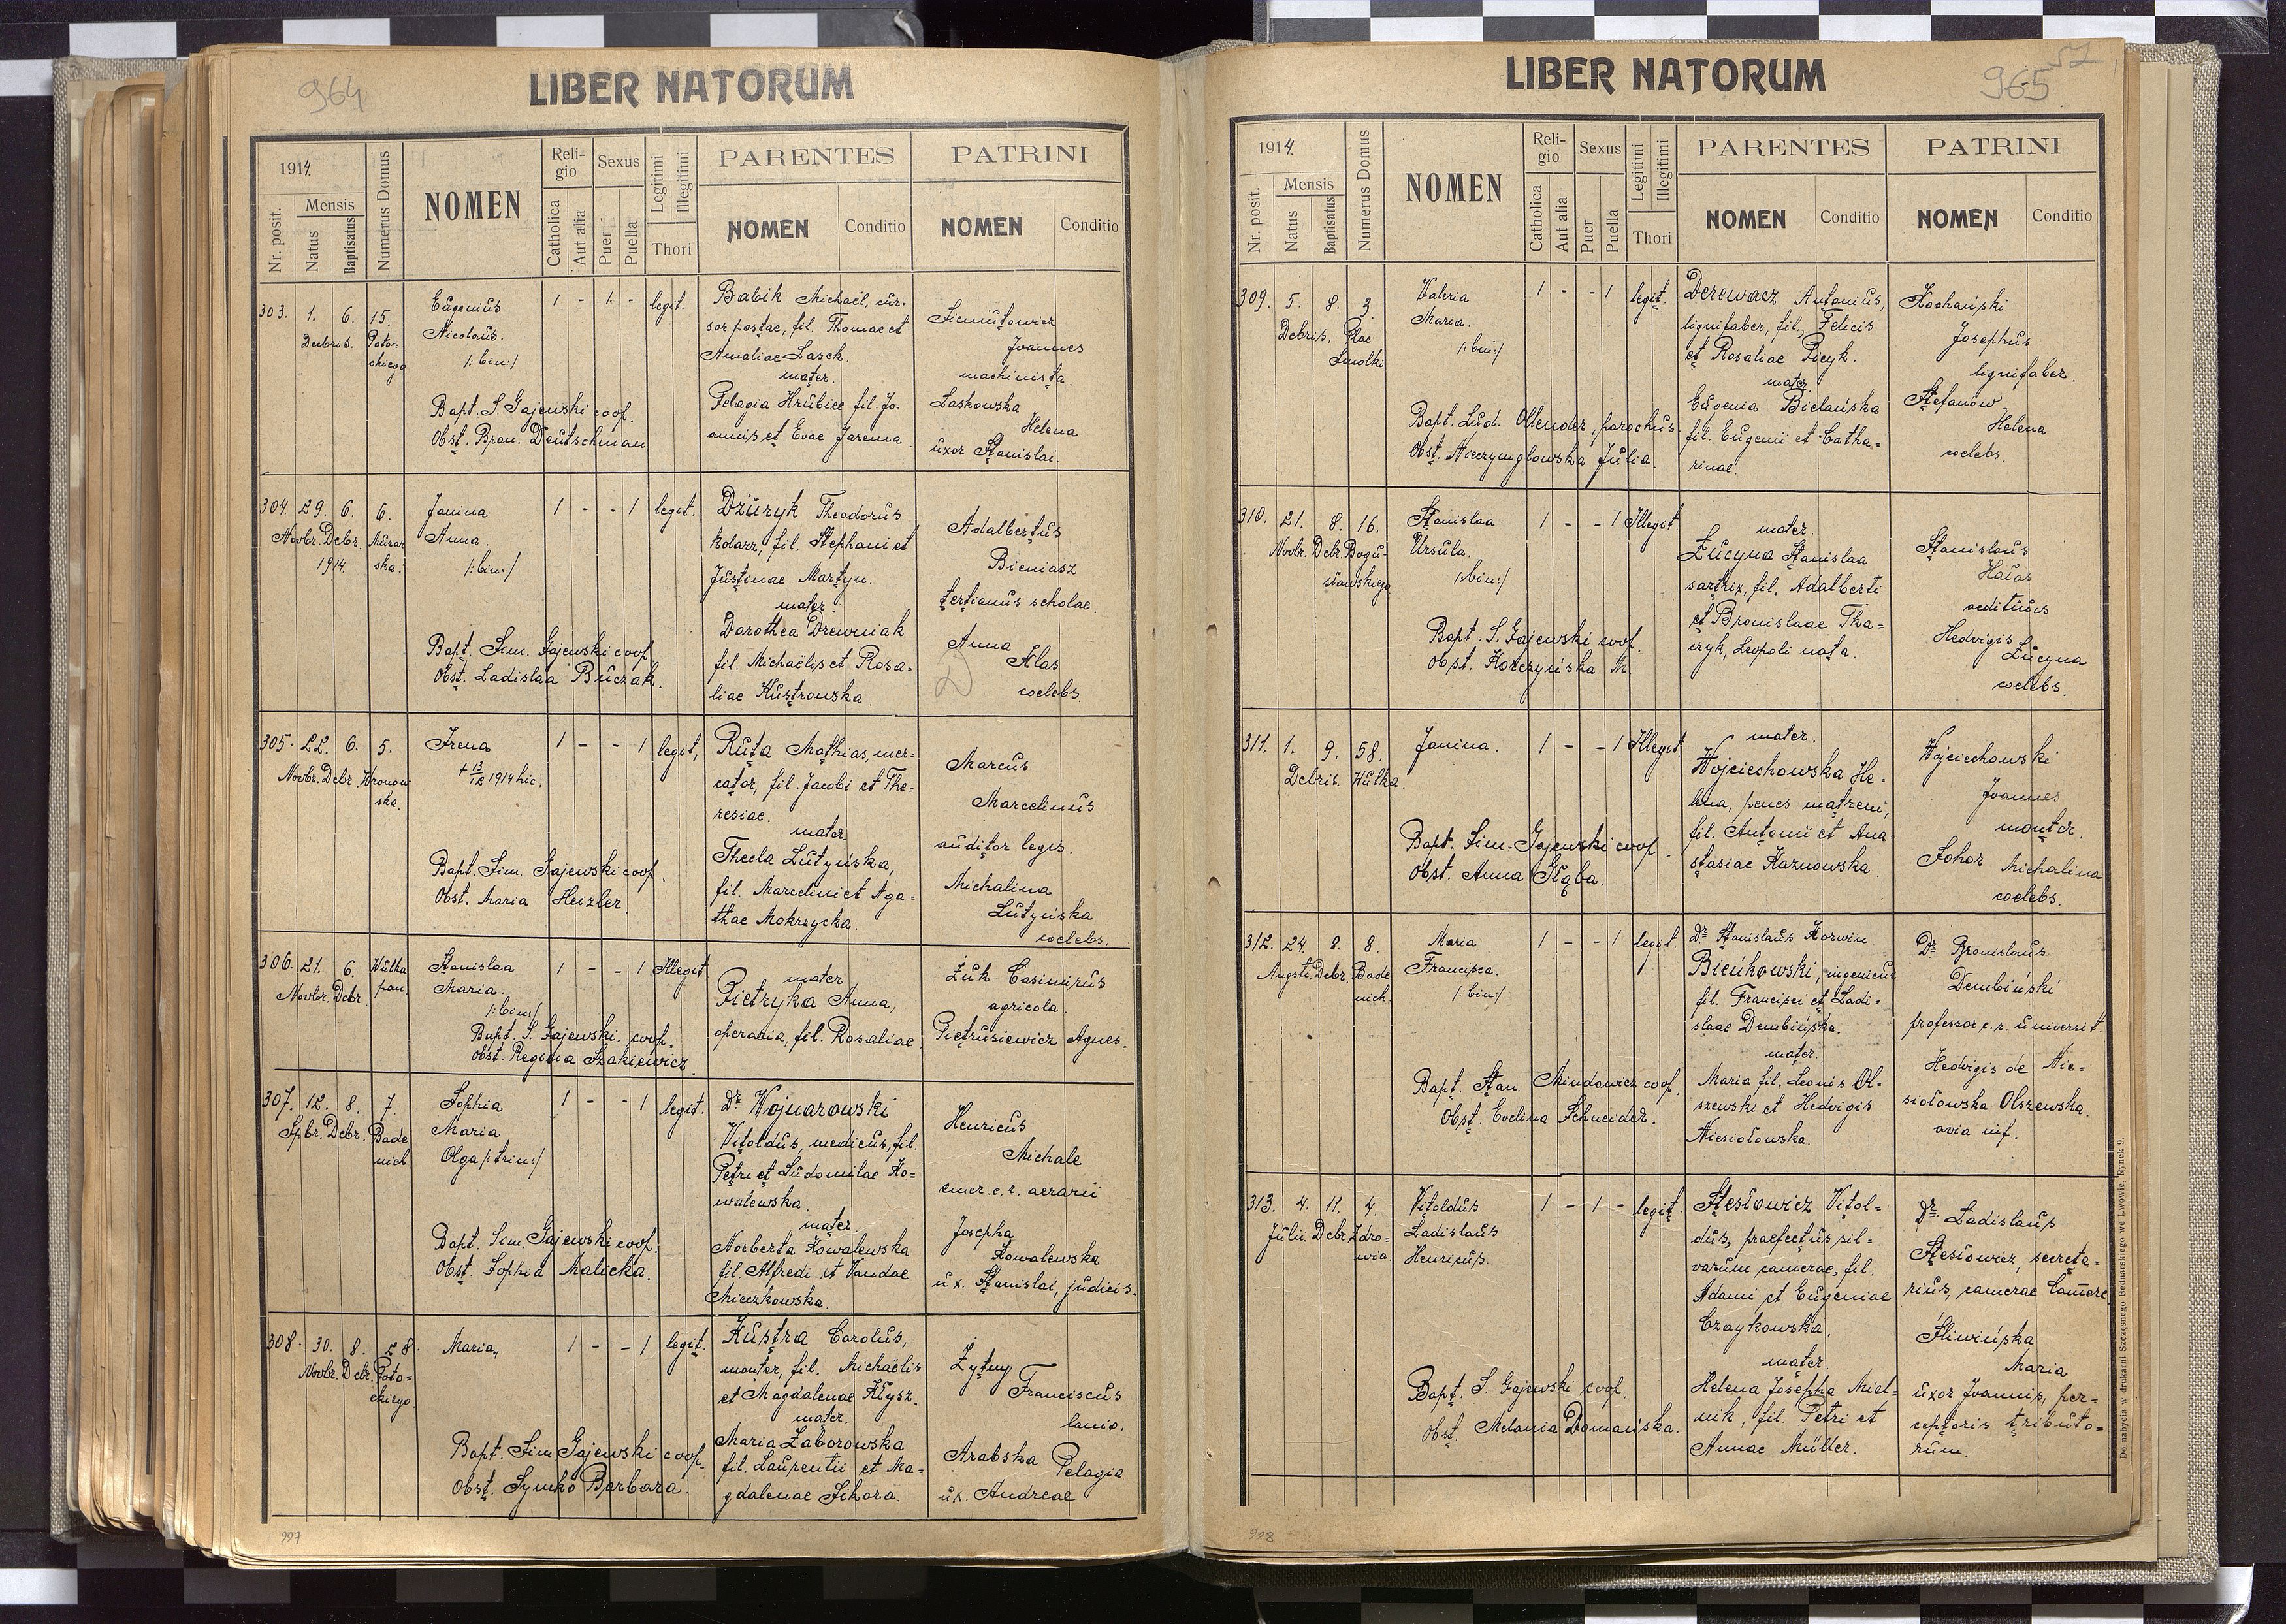 964
LIBER NATORUM
1914.
Nr. posit.
Mensis
Natus
Baptisatus
Numerus Domus
NOMEN
Religio
Catholica
Aut alia
Sexus
Puer
Puella
Legitimi
Illegitimi
Thori
PARENTES
NOMEN
Conditio
PATRINI
NOMEN
Conditio
303. 1. 6. 15.
Dcbris. Poto-
ckiego
Eugenius
Nicolaus.
/:bin:/
1 - 1 - legit.
Bapt. S. Gajewski coop.
Obst. Bron. Deutschman
Babik Michaël, cur-
sor postae, fil. Thomae et
Amaliae Lasek.
mater.
Pelagia Hrubiec fil. Jo-
annis et Evae Jarema.
Siemutowicz
Joannes
machinista.
Laskowska
Helena
uxor Stanislai.
304. 29. 6. 6.
Novbr. Dcbr. Murar-
1914. ska.
Janina
Anna.
/:bin:/
1 - - 1 legit.
Bapt. Sim. Gajewski coop.
Obst. Ladislaa Buczak.
Dziuryk Theodorus
kolarz, fil. Stephani et
Justinae Martyn.
mater.
Dorothea Drewniak
fil. Michaëlis et Rosa-
liae Kustrowska.
Adalbertus
Bieniasz
tertianus scholae.
Anna
Klas
coelebs.
305. 22. 6. 5.
Novbr. Dcbr. Wronow
ska.
Irena
+ 13/12 1914 hic.
1 - - 1 legit,
Bapt. Sim. Gajewski coop.
Obst. Maria Heizler.
Ruta Mathias, mer-
cator, fil. Jacobi et The-
resiae.
mater.
Thecla Lutyńska,
fil. Marcelini et Aga-
thae Mokrzycka.
Marcus
Marcelinus
auditor legis.
Michalina
Lutyńska
coelebs.
306. 21. 6. Wulka
Novbr. Dcbr. pan.
Stanislaa
Maria.
/:bin:/
1 - - 1 Illegit
Bapt. S. Gajewski, coop.
Obst. Regina Szakiewicz.
mater
Pietryka Anna,
operaria, fil. Rosaliae
Żuk Casimirus
agricola.
Pietrusiewicz Agnes.
307. 12. 8. 7.
Spbr. Dcbr. Bade
nich
Sophia
Maria
Olga /:trin:/
1 - - 1 legit.
Bapt. Sim. Gajewski coop.
Obst. Sophia Malicka.
Dr. Wojnarowski
Vitoldus, medicus, fil.
Petri et Ludomilae Ko-
walewska.
mater.
Norberta Kowalewska
fil. Alfredi et Vandae
Mieczkowska.
Henricus
Michale
emer. c. r. aerarii
Josepha
Kowalewska
ux. Stanislai, judicis.
308. 30. 8. 28.
Novbr. Dcbr. Poto-
ckiego
Maria,
1 - - 1 legit.
Bapt. Sim Gajewski coop.
Obst. Symko Barbara.
Kustra Carolus,
monter, fil. Michaëlis
et Magdalenae Kłysz.
mater.
Maria Zaborowska
fil. Laurentii et Ma-
gdalenae Sikora.
Żytny
Franciscus
lanio.
Arabska Pelagia
ux. Andreae
997
965
52
LIBER NATORUM
1914.
Nr. posit.
Mensis
Natus
Baptisatus
Numerus Domus
NOMEN
Religio
Catholica
Aut alia
Sexus
Puer
Puella
Legitimi
Illegitimi
Thori
PARENTES
NOMEN
Conditio
PATRINI
NOMEN
Conditio
309. 5. 8. 3.
Dcbris. Plac
Smolki
Valeria
Maria.
/:bin:/
1 - - 1 legit.
Bapt. Lud. Ollender, parochus
Obst. Nieczymgłowska Julia.
Derewacz, Antonius,
lignifaber, fil. Felicis
et Rosaliae Picyk.
mater.
Eugenia Bielańska
fil. Eugenii et Catha-
rinae.
Kochański
Josephus
lignifaber.
Stefanów
Helena
coelebs.
310. 21. 8. 16.
Novbr. Dcbr. Bogu-
sławskiego
Stanislaa
Ursula.
/:bin:/
1 - - 1 Illegit.
Bapt. S. Gajewski coop.
Obst. Korczyńska M
mater.
Łucyna Stanislaa
sartrix, fil. Adalberti
et Bronislaae Tka-
czyk, Leopoli nata.
Stanislaus
Hałas
aedituus
Hedvigis
Łucyna
coelebs.
311. 1. 9. 58.
Dcbris. Wulka.
Janina.
1 - - 1 Illegit
Bapt. Sim. Gajewski coop.
Obst. Anna Głąba.
mater.
Wojciechowska He-
lena, penes matrem,
fil. Antonii et Ana-
stasiae Kaznowska.
Wojciechowski
Joannes
monter.
Sohor
Michalina
coelebs.
312. 24. 8. 8.
Augsti. Dcbr. Bade
nich.
Maria
Francisca.
/:bin:/
1 - - 1 legit.
Bapt. Stan. Mindowicz coop.
Obst. Evelina Schneider.
Dr. Stanislaus Korwin
Bieńkowski, ingenieur
fil. Francisci et Ladi-
slaae Dembińska.
mater.
Maria fil. Leonis Ol-
szewski et Hedvigis
Niesiołowska.
Dr. Bronislaus
Dembiński
professor c. r. universit.
Hedvigis de Nie-
siołowska Olszewska.
avia inf.
313. 4. 11. 4.
Julii. Dcbr. Zdro-
wia.
Vitoldus
Ladislaus
Henricus.
1 - 1 - legit.
Bapt. S. Gajewski coop.
Obst. Melania Domańska.
Stesłowicz Vitol-
dus, praefectus sil-
varum camerae, fil.
Adami et Eugeniae
Czaykowska.
mater.
Helena Josepha Miel-
nik, fil. Petri et
Annae Müller.
Dr. Ladislaus
Stesłowicz, secreta-
rius, camerae Comerc
Śliwińska
Maria
uxor Joannis, per-
ceptoris tributo-
rum.
Do nabycia w drukarni Szczęsnego Bednarskiego we Lwowie, Rynek 9.
998